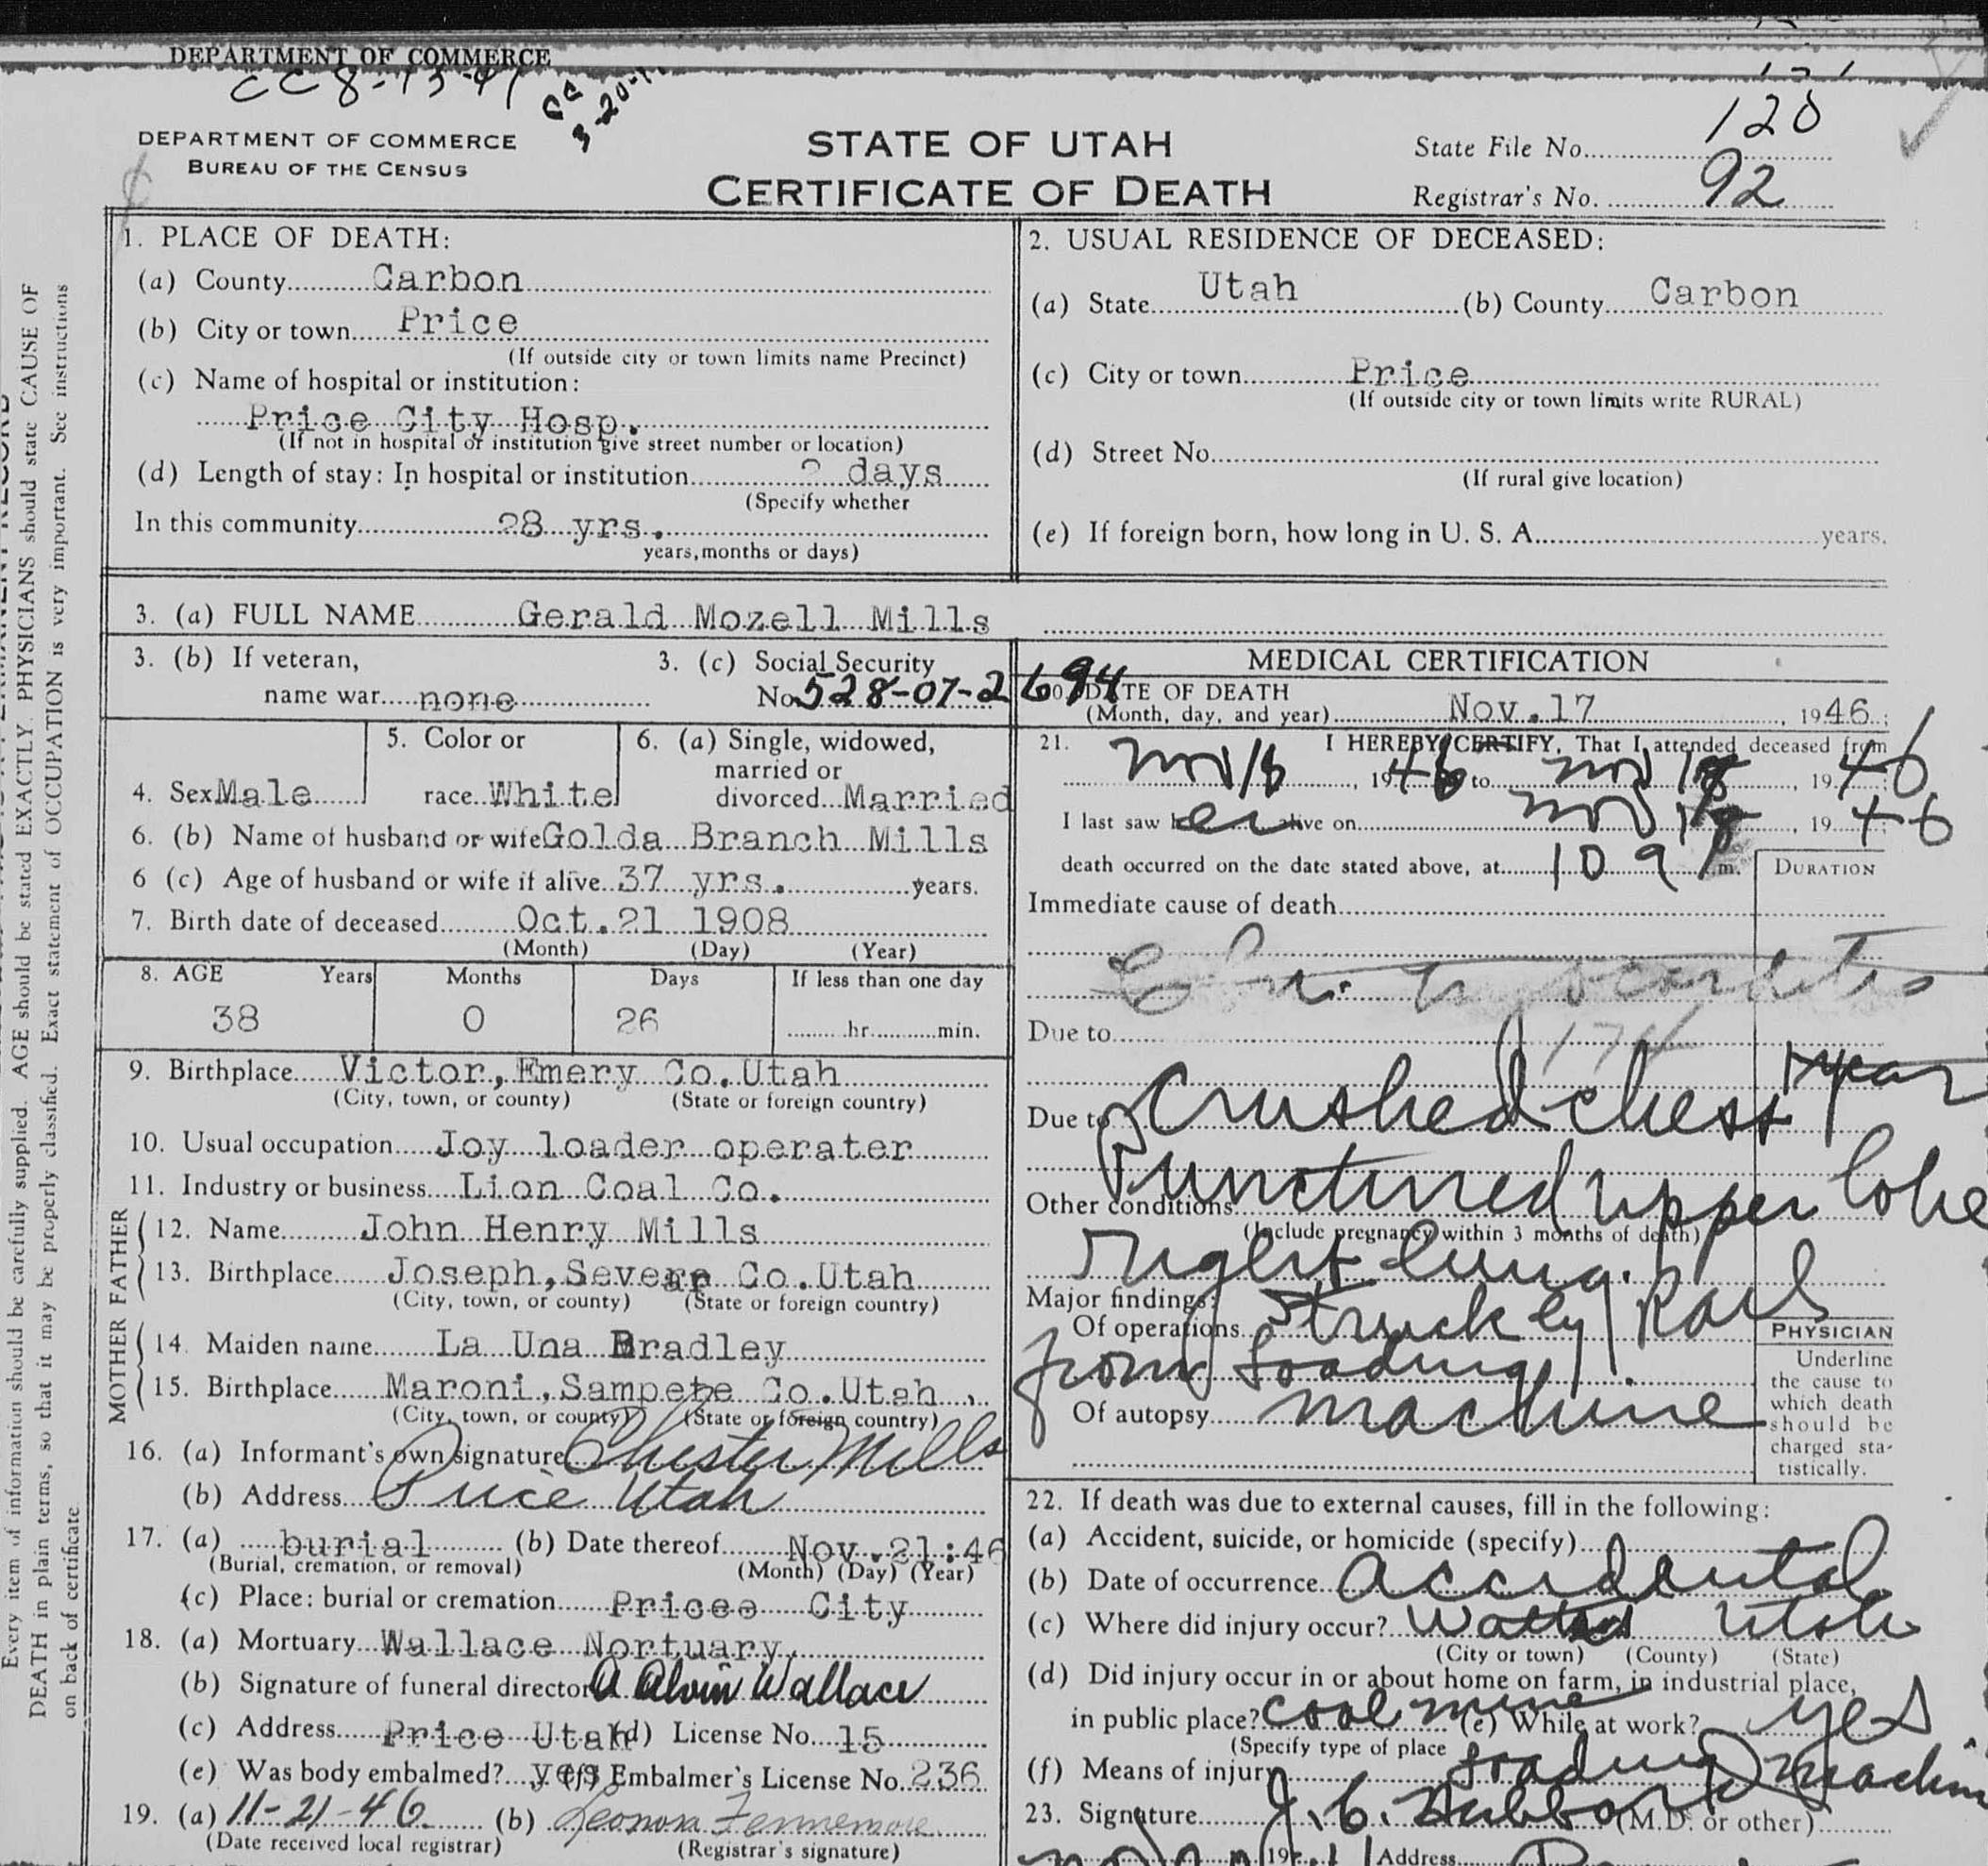 DEPARTMENT OF COMMERCE
CC 8-13-47
CC
DEPARTMENT OF COMMERCE
BUREAU OF THE CENSUS
STATE OF UTAH
CERTIFICATE OF DEATH
State File No. 120
Registrar's No. 92
Every item of information should be carefully supplied. AGE should be stated EXACTLY. PHYSICIANS should state CAUSE OF
DEATH in plain terms, so that it may be properly classified. Exact statement of OCCUPATION is very important. See instructions
on back of certificate
1. PLACE OF DEATH:
(a) County Carbon
(b) City or town Price
(If outside city or town limits name Precinct)
(c) Name of hospital or institution:
Price City Hosp.
(If not in hospital or institution give street number or location)
(d) Length of stay: In hospital or institution days
(Specify whether
In this community 28 yrs.
years, months or days)
2. USUAL RESIDENCE OF DECEASED:
(a) State Utah (b) County Carbon
(c) City or town Price
(If outside city or town limits write RURAL)
(d) Street No.
(If rural give location)
(e) If foreign born, how long in U. S. A. years.
3. (a) FULL NAME Gerald Mozell Mills
3. (b) If veteran,
name war none
3. (c) Social Security
No. 528-07-2694
4. Sex Male
5. Color or
race White
6. (a) Single, widowed,
married or
divorced Married
6. (b) Name of husband or wife Golda Branch Mills
6 (c) Age of husband or wife if alive 37 yrs. years.
7. Birth date of deceased Oct. 21 1908
(Month) (Day) (Year)
8. AGE Years Months Days If less than one day
38 0 26 hr. min.
9. Birthplace Victor, Emery Co. Utah
(City, town, or county) (State or foreign country)
10. Usual occupation Joy loader operater
11. Industry or business Lion Coal Co.
FATHER
12. Name John Henry Mills
13. Birthplace Joseph, Severe Co. Utah
(City, town, or county) (State or foreign country)
MOTHER
14. Maiden name La Una Bradley
15. Birthplace Maroni, Sampete Co. Utah
(City, town, or county) (State or foreign country)
16. (a) Informant's own signature Chester Mills
(b) Address Price Utah
17. (a) burial (b) Date thereof Nov. 21: 46
(Burial, cremation, or removal) (Month) (Day) (Year)
(c) Place: burial or cremation Pricee City
18. (a) Mortuary Wallace Nortuary
(b) Signature of funeral director A Alvin Wallace
(c) Address Price Utah (d) License No. 15
(e) Was body embalmed? yes (f) Embalmer's License No. 236
19. (a) 11-21-46 (b) Leonora Fennemore
(Date received local registrar) (Registrar's signature)
MEDICAL CERTIFICATION
20. DATE OF DEATH
(Month, day, and year) Nov. 17, 1946;
21. I HEREBY CERTIFY, That I attended deceased from
Nov 18, 1946 to Nov 18, 1946
I last saw her alive on Nov 18, 1946
death occurred on the date stated above, at 10 9 P m.
DURATION
Immediate cause of death
myocarditis
Due to
1 year
Due to Crushed chest
Punctured upper lobe
Other conditions
(Include pregnancy within 3 months of death)
right lung.
Major findings:
Of operations Struck by Rail
from loading
Of autopsy machine
PHYSICIAN
Underline
the cause to
which death
should be
charged sta-
tistically.
22. If death was due to external causes, fill in the following:
(a) Accident, suicide, or homicide (specify)
(b) Date of occurrence accidental
(c) Where did injury occur? Wattis Utah
(City or town) (County) (State)
(d) Did injury occur in or about home on farm, in industrial place,
in public place? coal mine (e) While at work? yes
(Specify type of place
(f) Means of injury Loading Machine
23. Signature J. C. Hubbard (M.D. or other)
Address